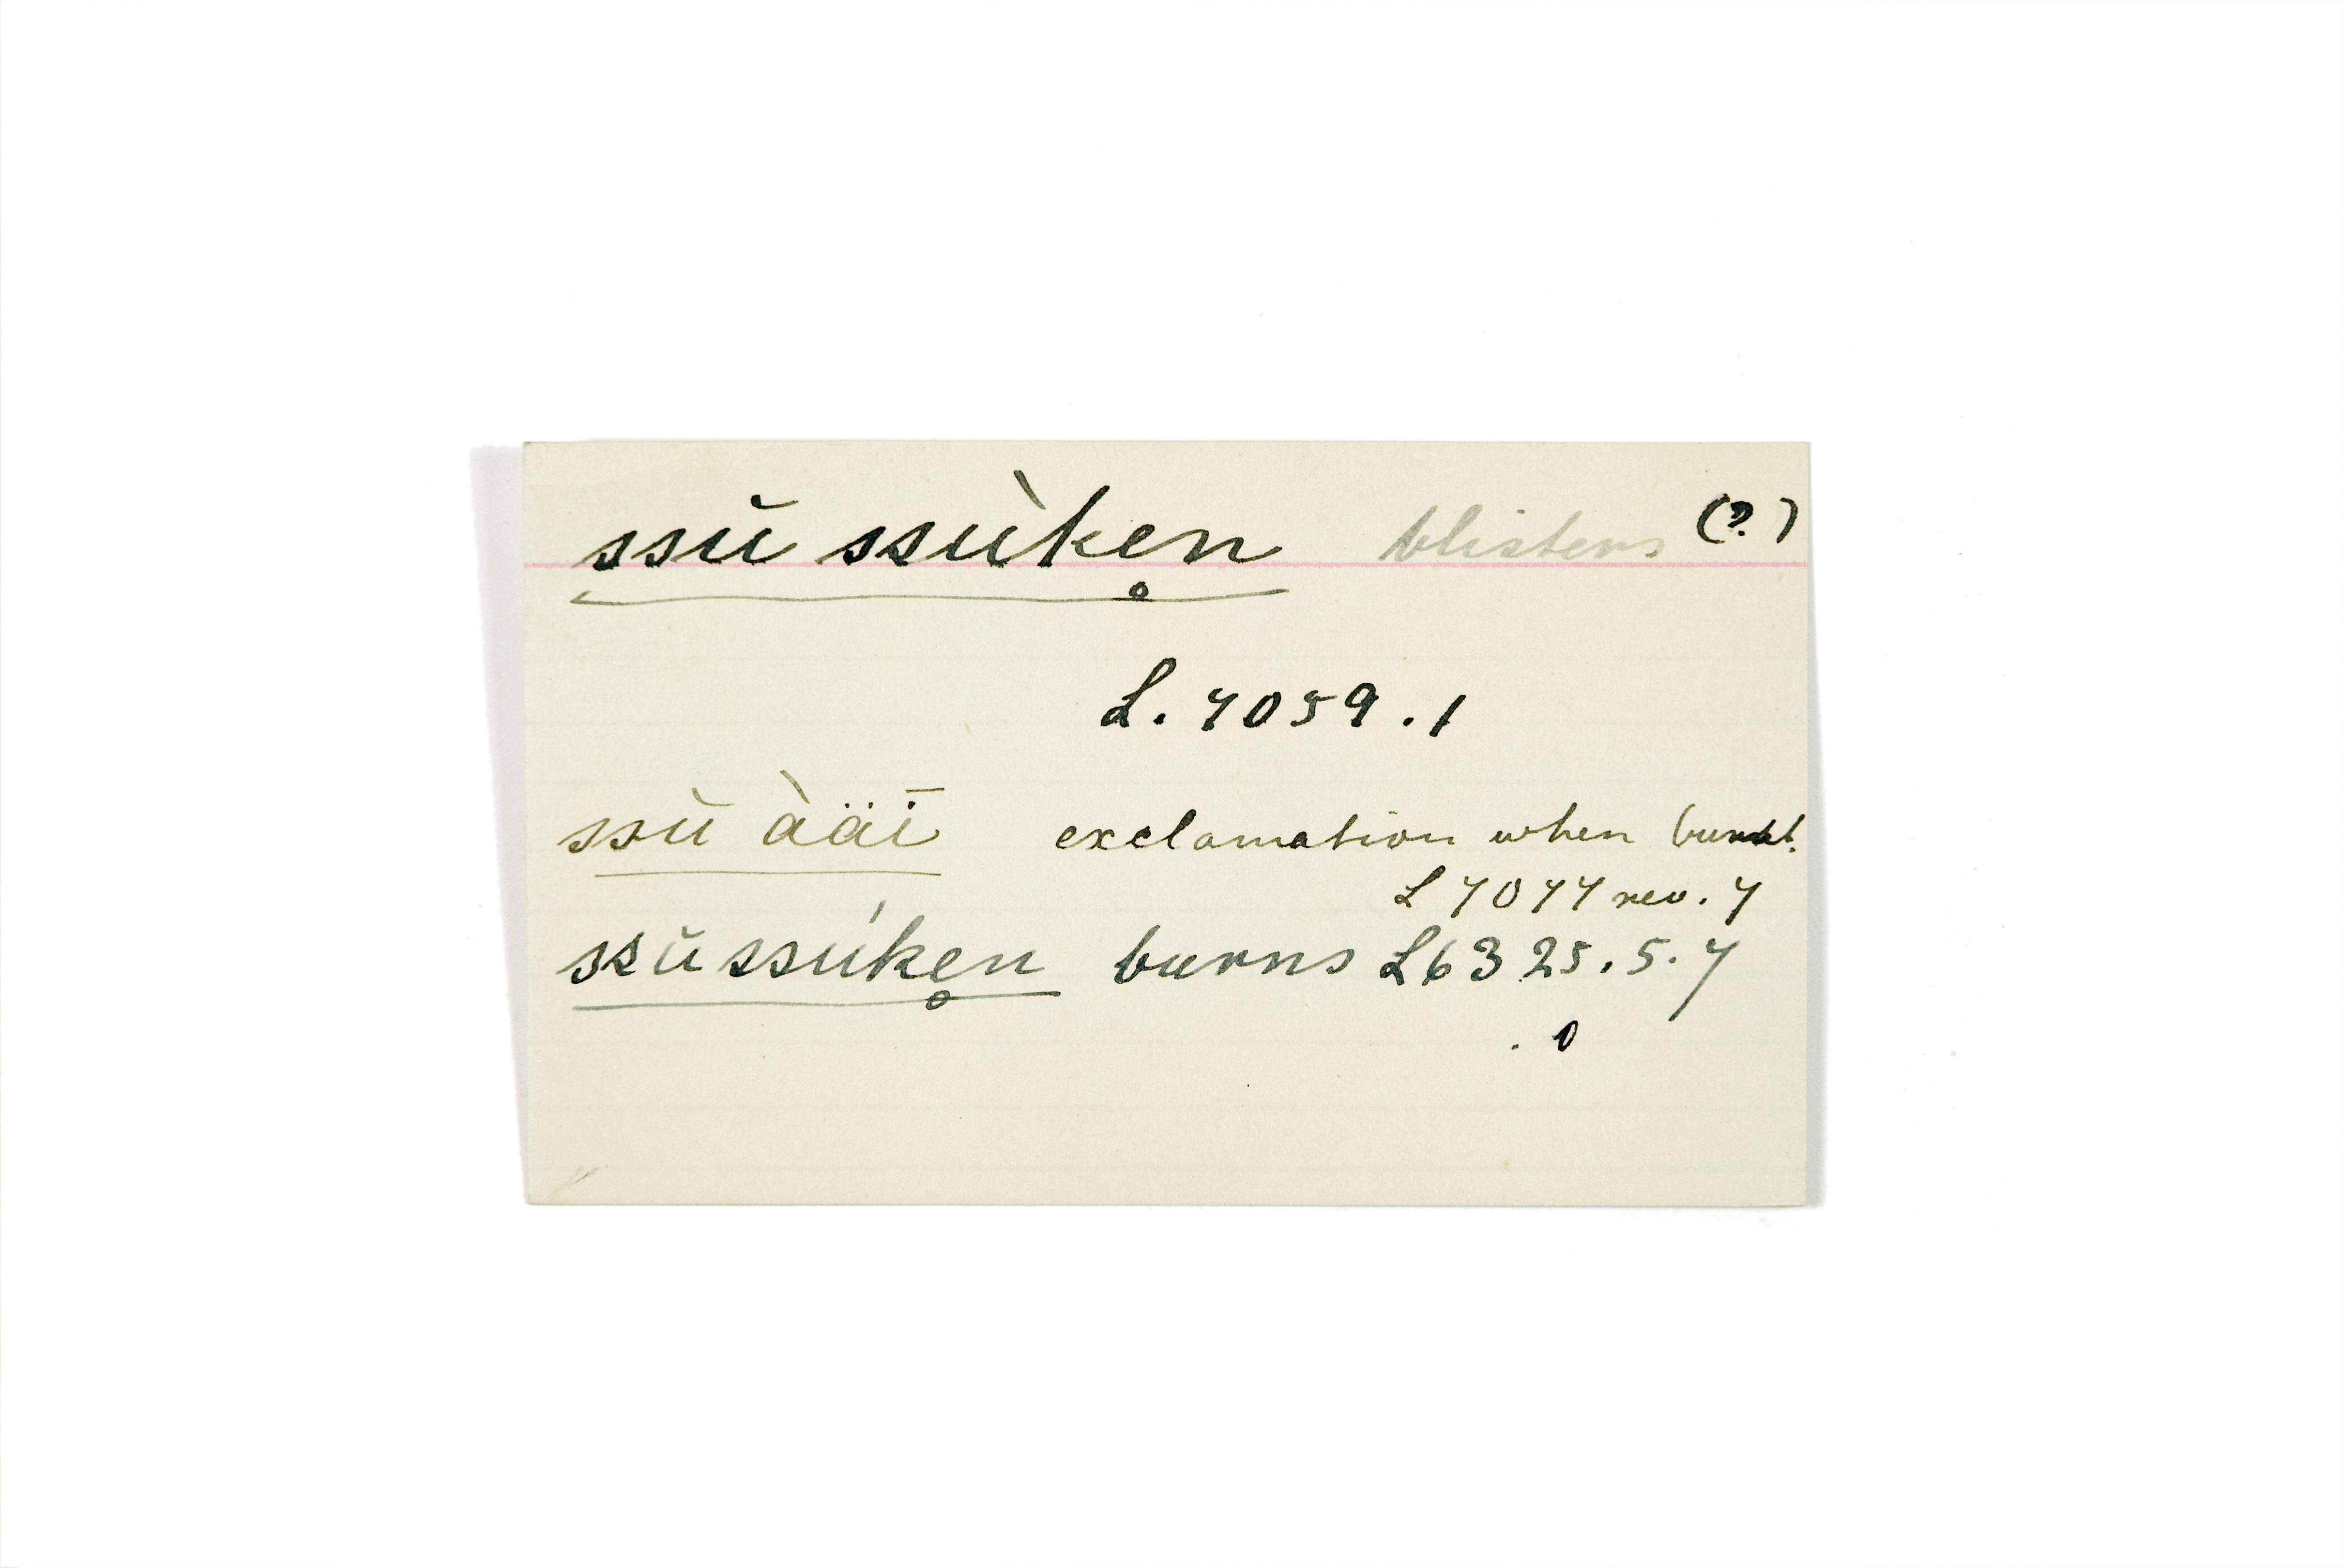 ssŭ ssùke̥n blisters (?)
L. 7059.1
ssŭ ààï exclamation when burnt.
L 7077 rev. 7
ssŭ ssúke̥n burns L 6325.5.7
. 0